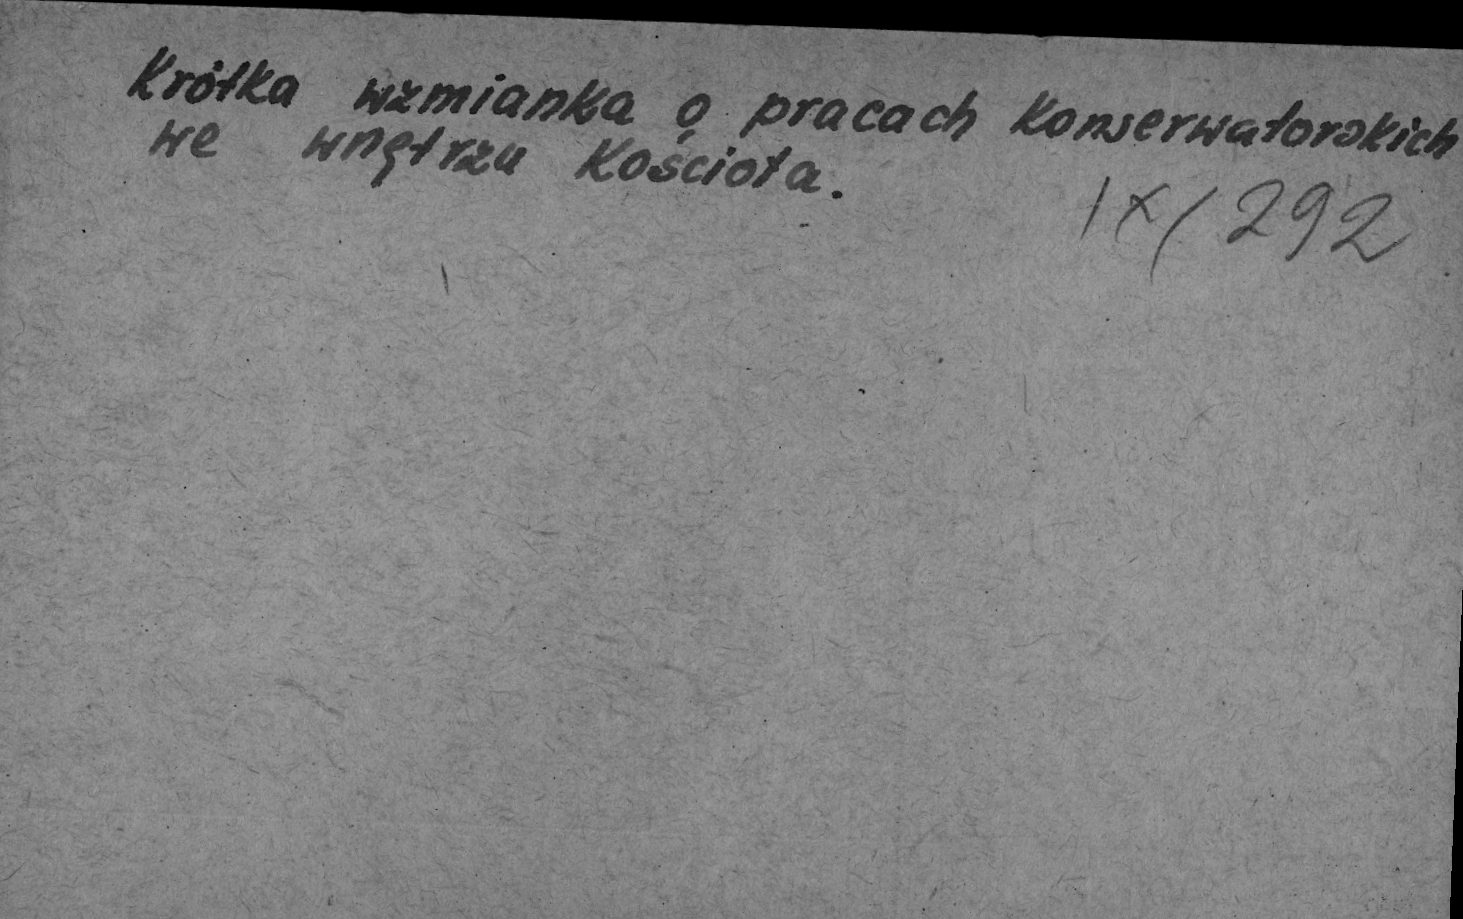 Krótka wzmianka o pracach konserwatorskich
we wnętrzu kościoła.
IX/292